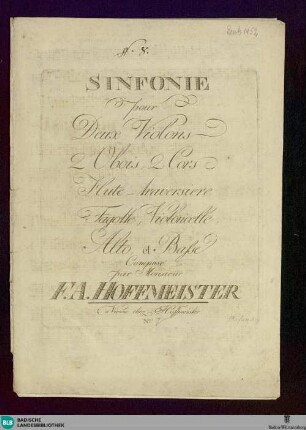 SINFONIE
pour
Deux Violons
2 Obois, 2 Cors
Flute traversiere
Fagotte, Violoncelle
Alto, et Basse
Composée
par Monsieur
F. A. HOFFMEISTER
BLB BADISCHE
LANDESBIBLIOTHEK
Baden-Württemberg